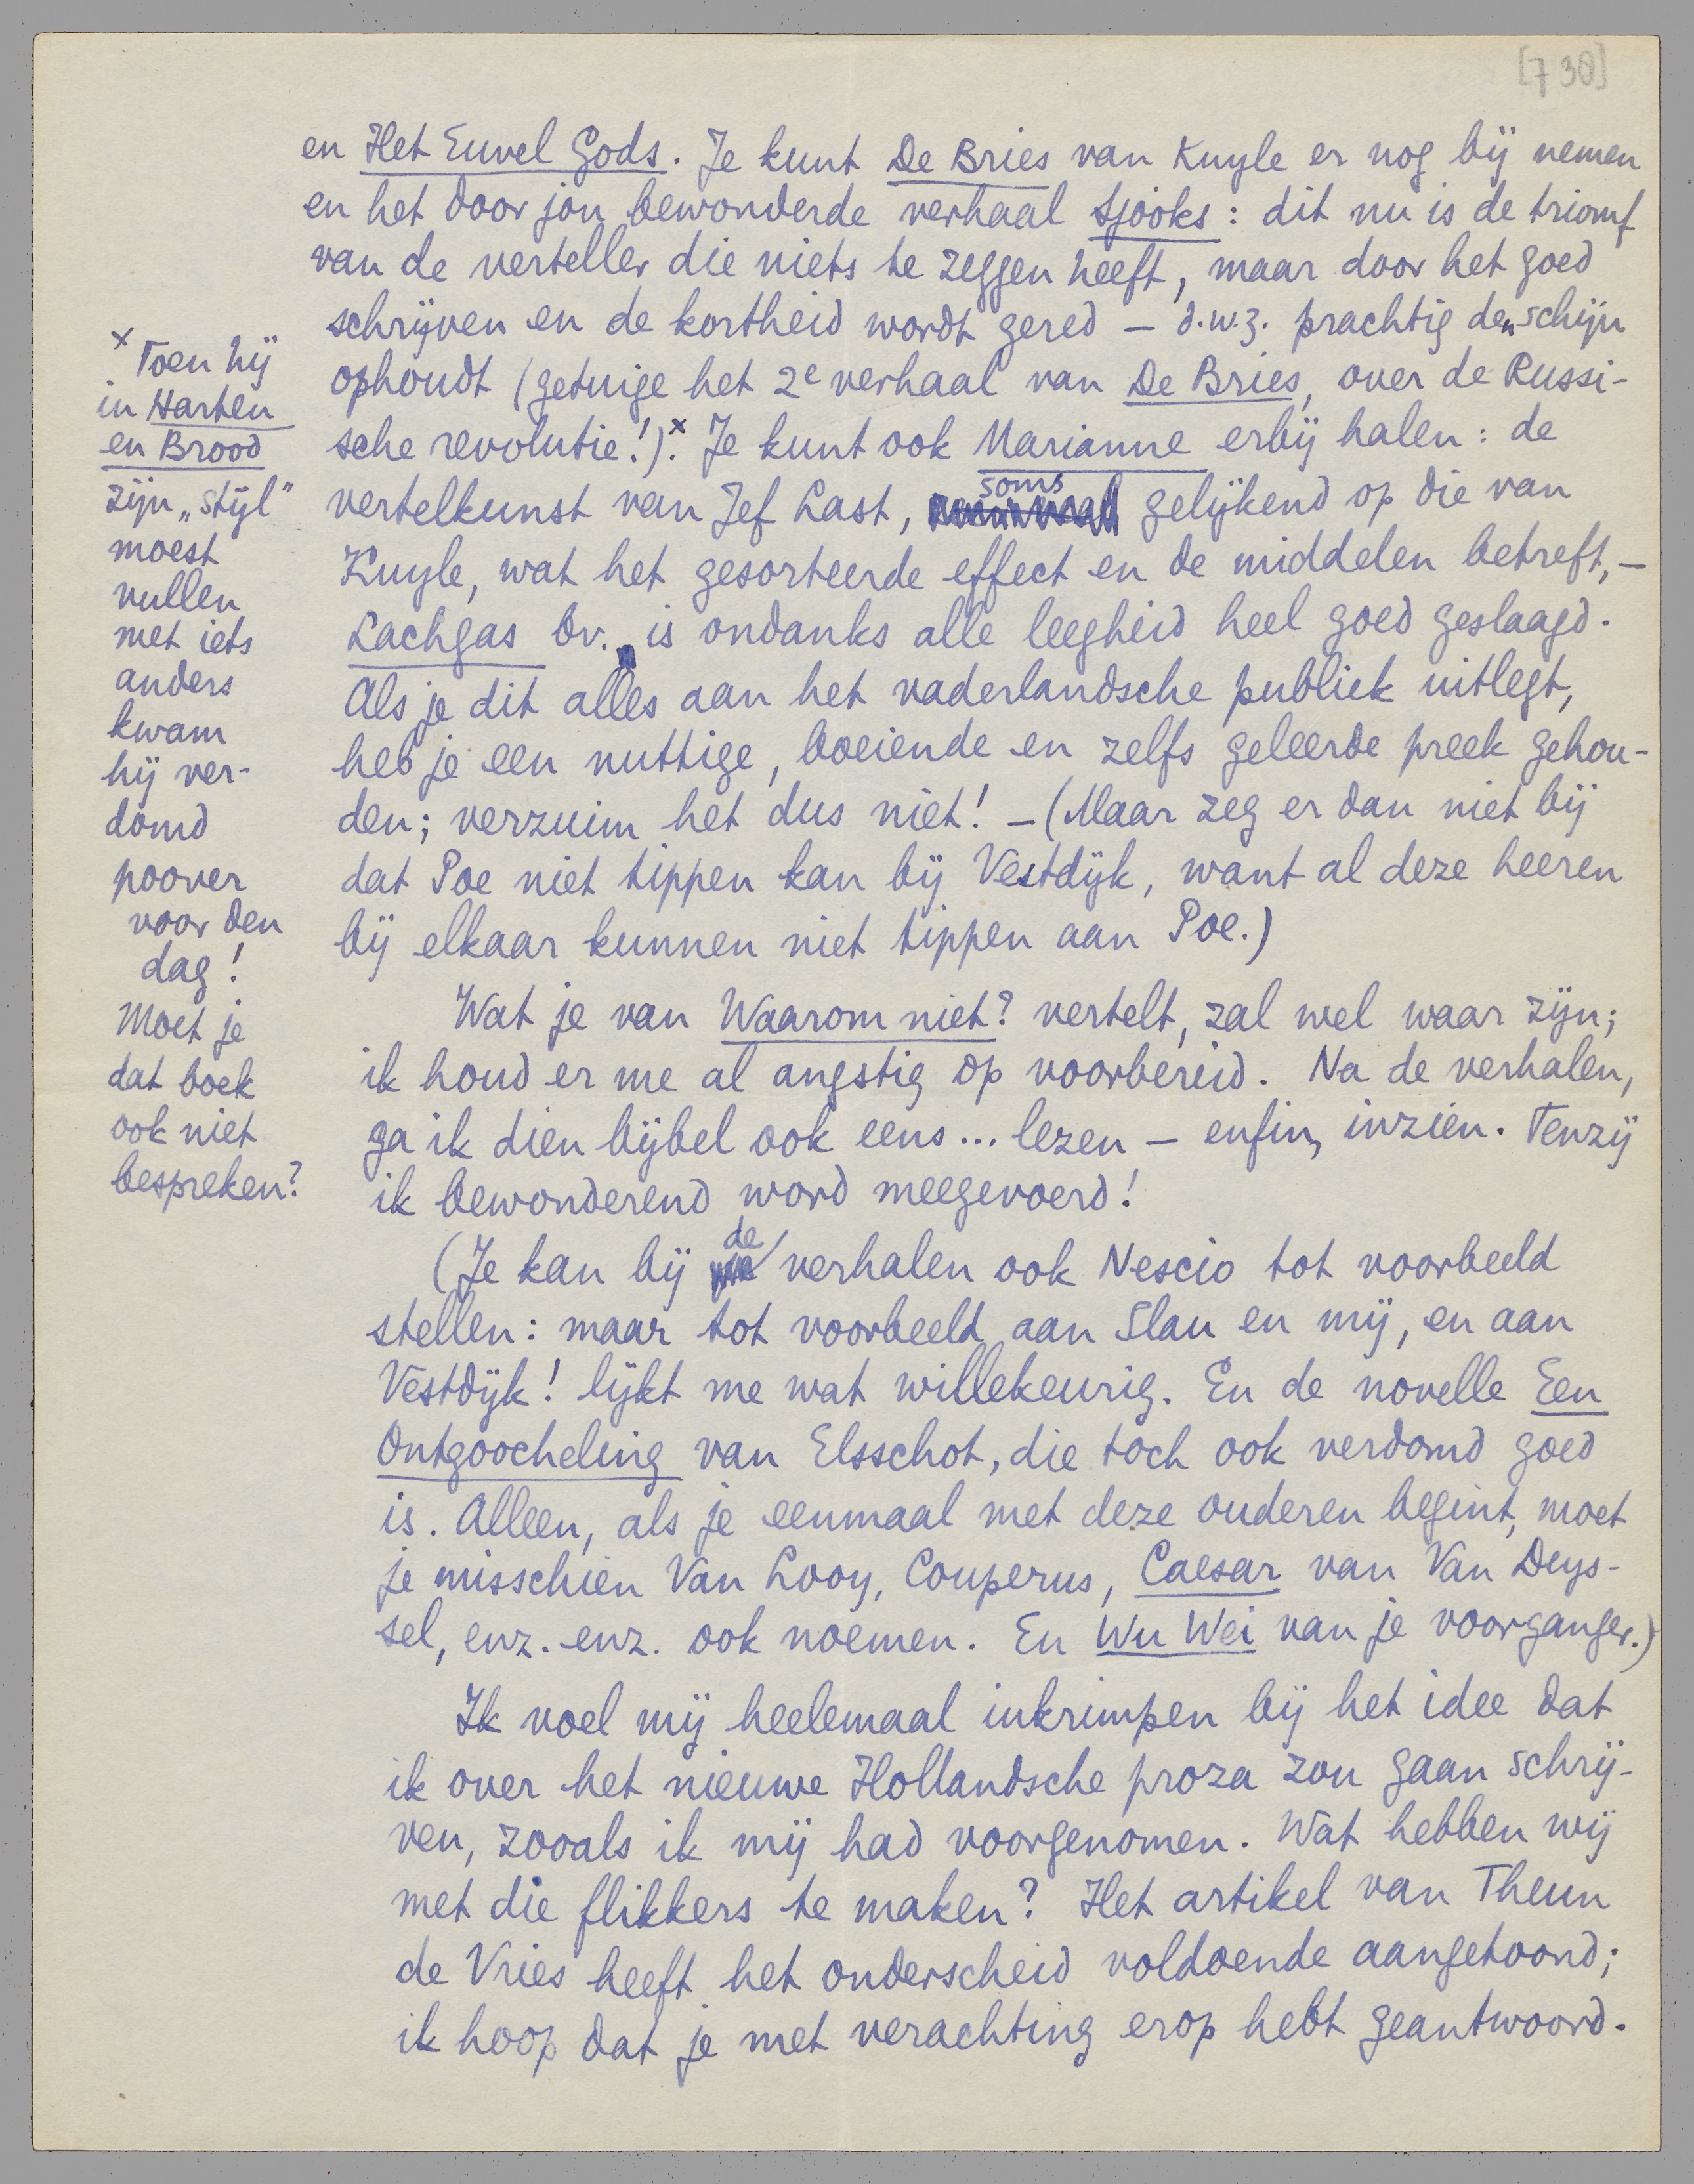 [730]
en Het Euvel Gods. Je kunt De Bries van Kuyle er nog bij nemen
en het door jou bewonderde verhaal Sjooks: dit nu is de triomf
van de verteller die niets te zeggen heeft, maar door het goed
schrijven en de kortheid wordt gered – d.w.z. prachtig den schijn
ophoudt (getuige het 2e verhaal van De Bries, over de Russi-
sche revolutie!).x Je kunt ook Marianne erbij halen: de
vertelkunst van Jef Last, soms gelijkend op die van
Kuyle, wat het gesorteerde effect en de middelen betreft, –
Lachgas bv. is ondanks alle leegheid heel goed geslaagd.
Als je dit alles aan het vaderlandsche publiek uitlegt,
heb je een nuttige, boeiende en zelfs geleerde preek gehou-
den; verzuim het dus niet! – (Maar zeg er dan niet bij
dat Poe niet tippen kan bij Vestdijk, want al deze heeren
bij elkaar kunnen niet tippen aan Poe.)
Wat je van Waarom niet? vertelt, zal wel waar zijn;
ik houd er me al angstig op voorbereid. Na de verhalen,
ga ik dien bijbel ook eens... lezen – enfin, inzien. Tenzij
ik bewonderend word meegevoerd!
(Je kan bij de verhalen ook Nescio tot voorbeeld
stellen: maar tot voorbeeld aan Slau en mij, en aan
Vestdijk! lijkt me wat willekeurig. En de novelle Een
Ontgoocheling van Elsschot, die toch ook verdomd goed
is. Alleen, als je eenmaal met deze ouderen begint, moet
je misschien Van Looy, Couperus, Caesar van Van Deys-
sel, enz. enz. ook noemen. En Wu Wei van je voorganger.)
Ik voel mij heelemaal inkrimpen bij het idee dat
ik over het nieuwe Hollandsche proza zou gaan schrij-
ven, zooals ik mij had voorgenomen. Wat hebben wij
met die flikkers te maken? Het artikel van Theun
de Vries heeft het onderscheid voldoende aangetoond;
ik hoop dat je met verachting erop hebt geantwoord.
x Toen hij
in Harten
en Brood
zijn „stijl”
moest
vullen
met iets
anders
kwam
hij ver-
domd
poover
voor den
dag!
Moet je
dat boek
ook niet
bespreken?